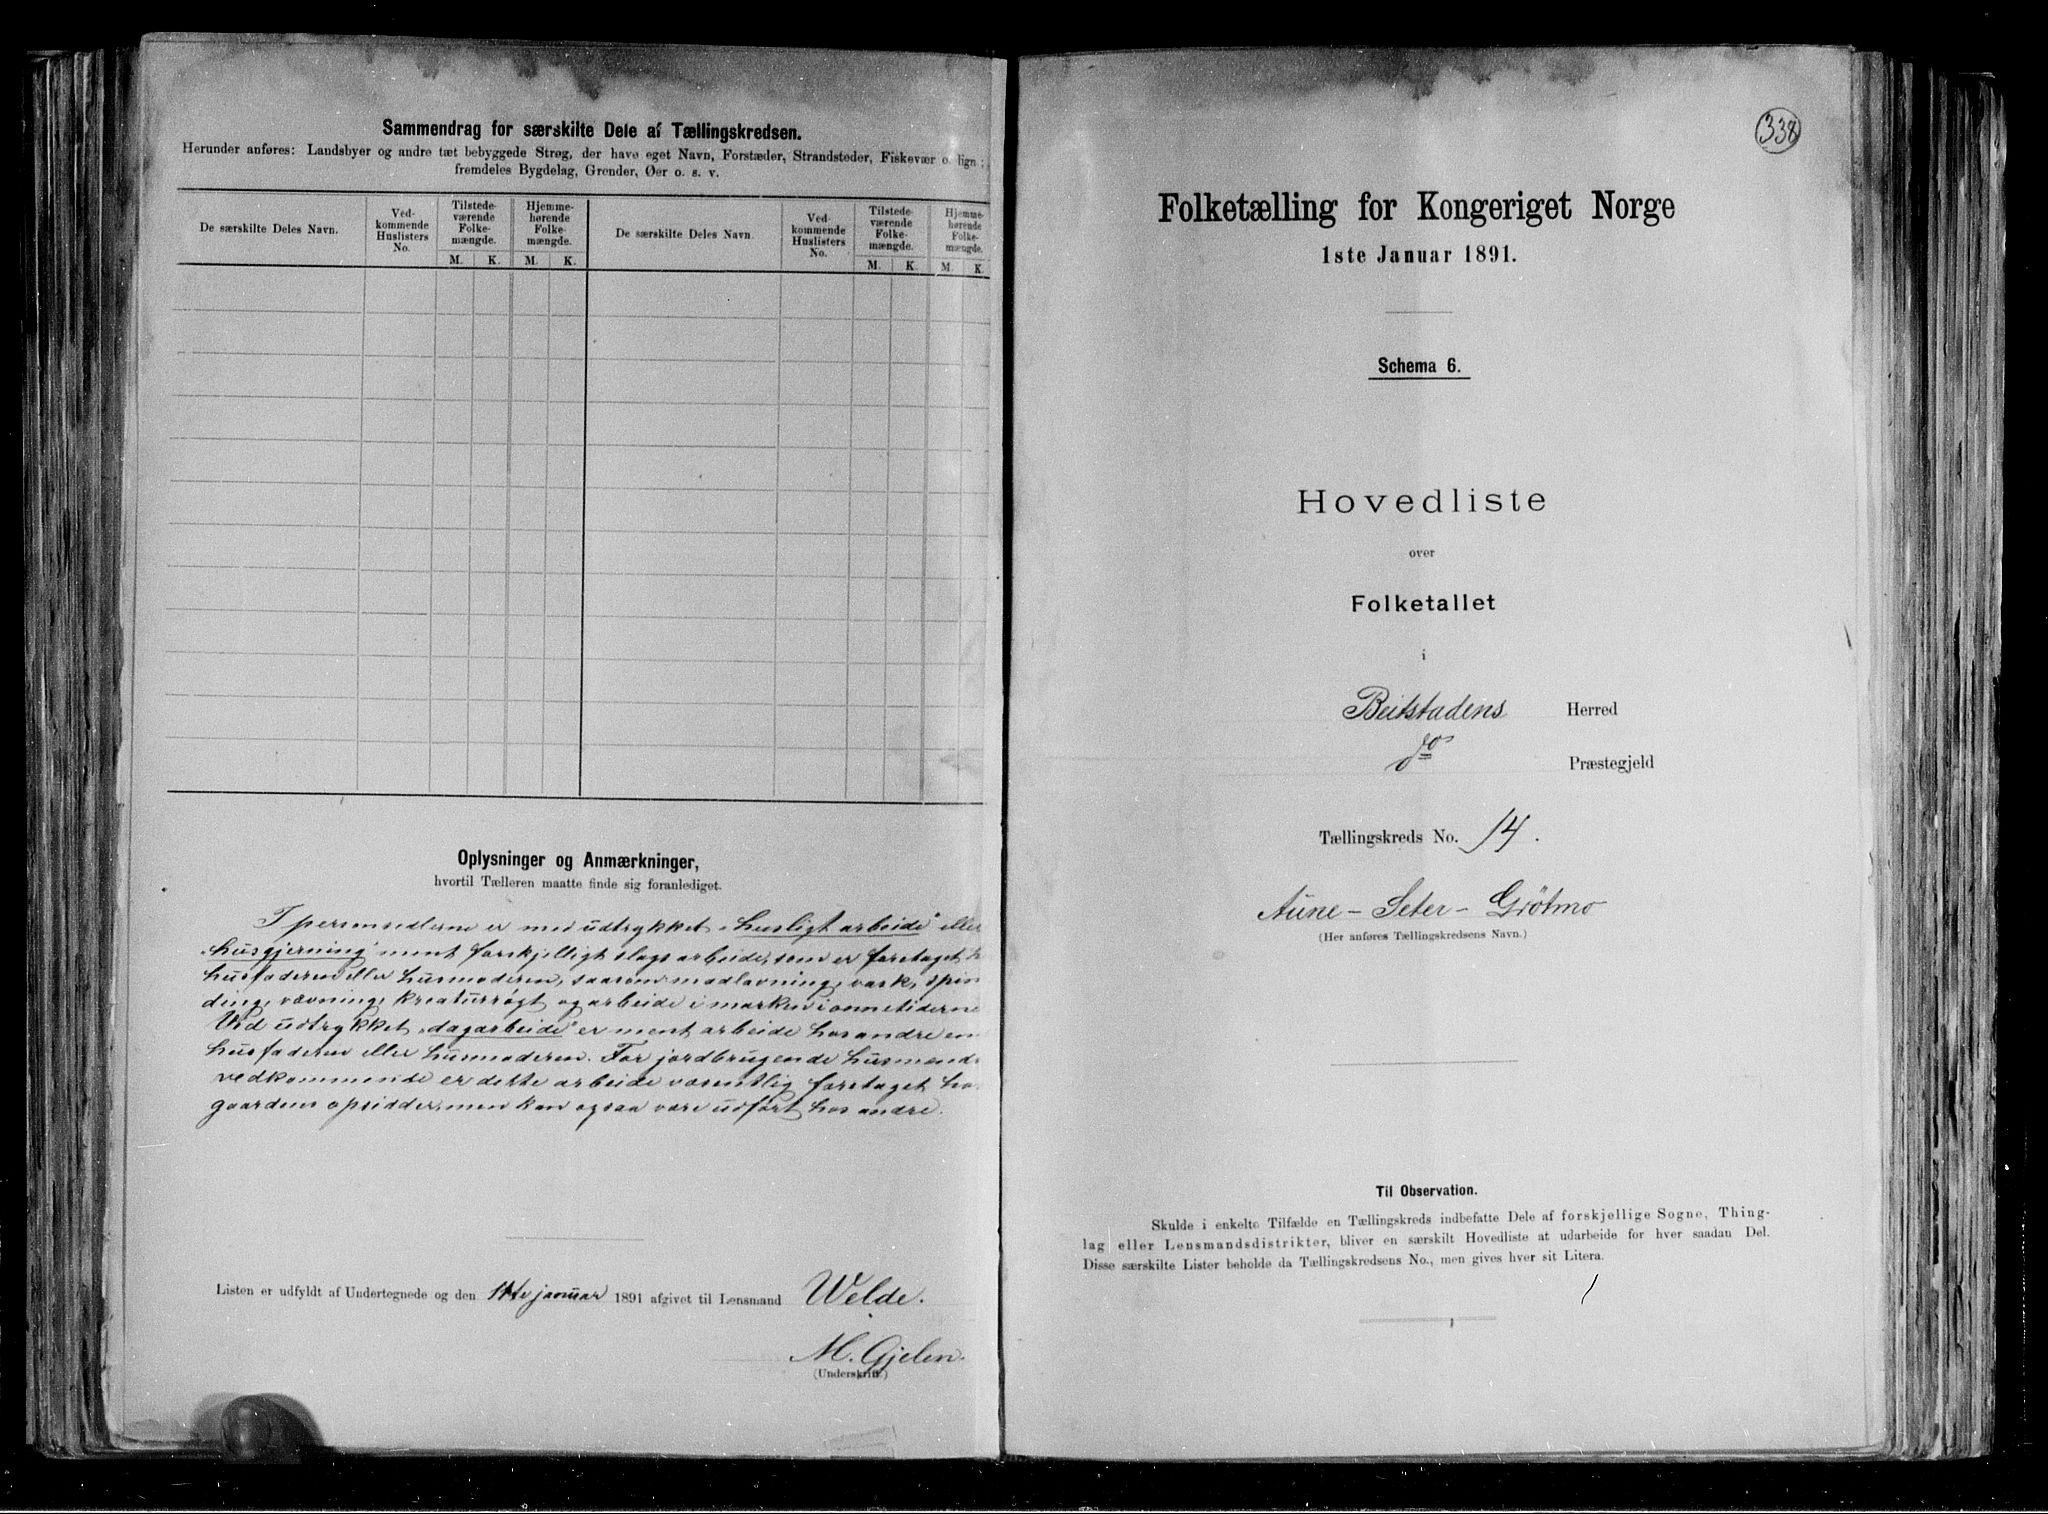 Sammendrag for særskilte Dele af Tællingskredsen.
Herunder anføres: Landsbyer og andre tæt bebyggede Strøg, der have eget Navn, Forstæder, Strandsteder, Fiskevær o. lign;
fremdeles Bygdelag, Grender, Øer o. s. v.
De særskilte Deles Navn.
Ved-
kommende
Huslisters
No.
Tilstede-
værende
Folke-
mængde.
Hjemme-
hørende
Folke-
mængde.
M. K. M. K.
De særskilte Deles Navn.
Ved-
kommende
Huslisters
No.
Tilstede-
værende
Folke-
mængde.
Hjemme-
hørende
Folke-
mængde.
M. K. M. K.
Oplysninger og Anmærkninger,
hvortil Tælleren maatte finde sig foranlediget.
I personsedlerne er med udtrykket „husligt arbeide" eller
„husgjerning" ment forskjelligt slags arbeide, som er foretaget
husfaderen eller husmoderen, saasom madlavning, vask, spin
ding, vævning, kreaturrøgt og arbeide i marken i onnetiderne
Vid udtrykket „dagarbeide" er ment arbeide hos andre en
husfaderen eller husmoderen. For jordbrugende husmænds
vedkommende er dette arbeide væsentlig foretaget hos
gaardens opsidder, men kan ogsaa være udført hos andre.
Listen er udfyldt af Undertegnede og den 14de januar 1891 afgivet til Lensmand Welde.
M. Gjelen.
(Underskrift.)
338
Folketælling for Kongeriget Norge
1ste Januar 1891.
Schema 6.
Hovedliste
over
Folketallet
i
Beitstadens Herred
do Præstegjeld
Tællingskreds No. 14.
Aune - Seter - Grøtmo
(Her anføres Tællingskredsens Navn.)
Til Observation.
Skulde i enkelte Tilfælde en Tællingskreds indbefatte Dele af forskjellige Sogne, Thing-
lag eller Lensmandsdistrikter, bliver en særskilt Hovedliste at udarbeide for hver saadan Del.
Disse særskilte Lister beholde da Tællingskredsens No., men gives hver sit Litera.